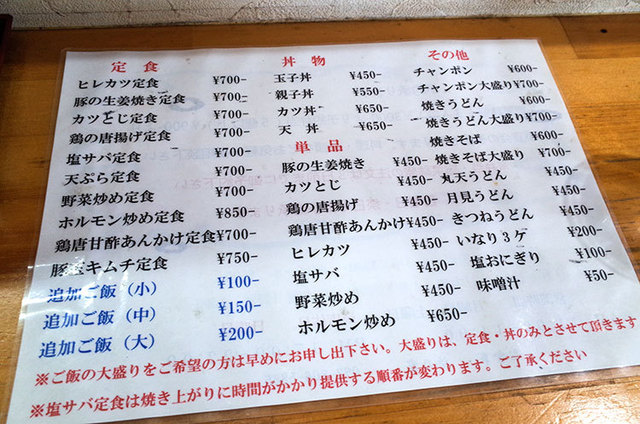 定食
ヒレカツ定食 ¥700-
豚の生姜焼き定食 ¥700-
カツとじ定食 ¥700-
鶏の唐揚げ定食 ¥700-
塩サバ定食 ¥700-
天ぷら定食 ¥700-
野菜炒め定食 ¥700-
ホルモン炒め定食 ¥850-
鶏唐甘酢あんかけ定食 ¥700-
豚キムチ定食 ¥750-
追加ご飯（小） ¥100-
追加ご飯（中） ¥150-
追加ご飯（大） ¥200-
丼物
玉子丼 ¥450-
親子丼 ¥550-
カツ丼 ¥650-
天丼 ¥650-
単品
豚の生姜焼き ¥450-
カツとじ ¥450-
鶏の唐揚げ ¥450-
鶏唐甘酢あんかけ ¥450-
ヒレカツ ¥450-
塩サバ ¥450-
野菜炒め ¥450-
ホルモン炒め ¥650-
その他
チャンポン ¥600-
チャンポン大盛り ¥700-
焼きうどん ¥600-
焼きうどん大盛り ¥700-
焼きそば ¥600-
焼きそば大盛り ¥700-
丸天うどん ¥450-
月見うどん ¥450-
きつねうどん ¥450-
いなり3ケ ¥200-
塩おにぎり ¥100-
味噌汁 ¥50-
※ご飯の大盛りをご希望の方は早めにお申し出下さい。大盛りは、定食・丼のみとさせて頂きます
※塩サバ定食は焼き上がりに時間がかかり提供する順番が変わります。ご了承ください